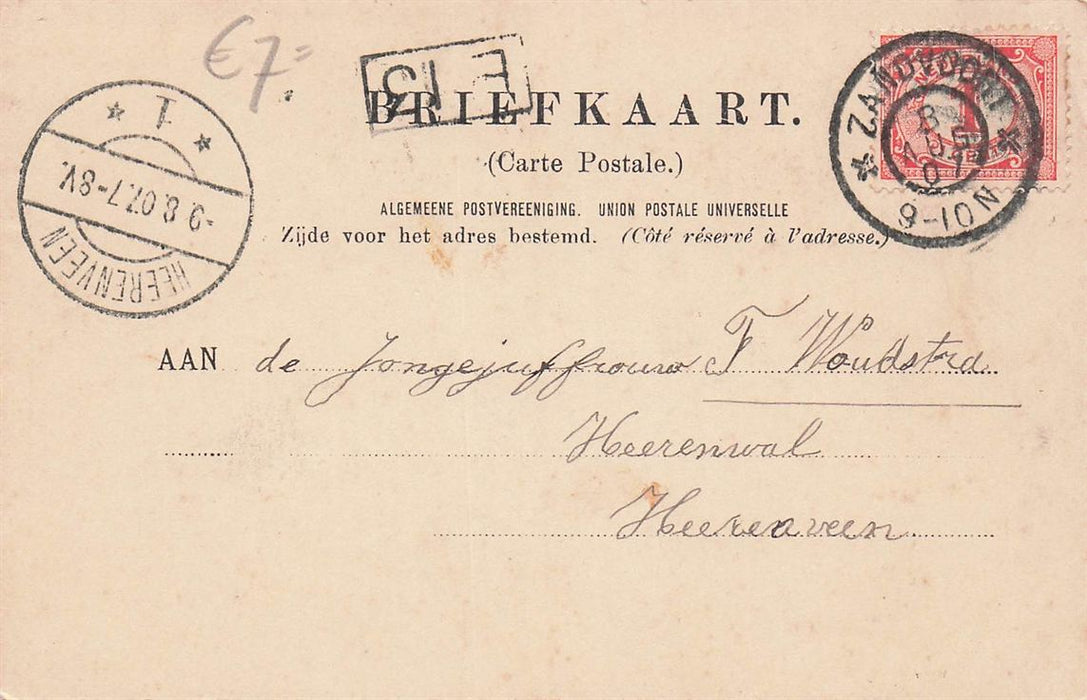 €7.=
E 15
BRIEFKAART.
(Carte Postale.)
ALGEMEENE POSTVEREENIGING. UNION POSTALE UNIVERSELLE
Zijde voor het adres bestemd. (Côté réservé à l'adresse.)
ZANDVOORT
8 AUG 07
9-10N
1
-9.8.07.7-8V.
HEERENVEEN
AAN de Jongejuffrouw F Woudstra
Heerenwal
Heerenveen